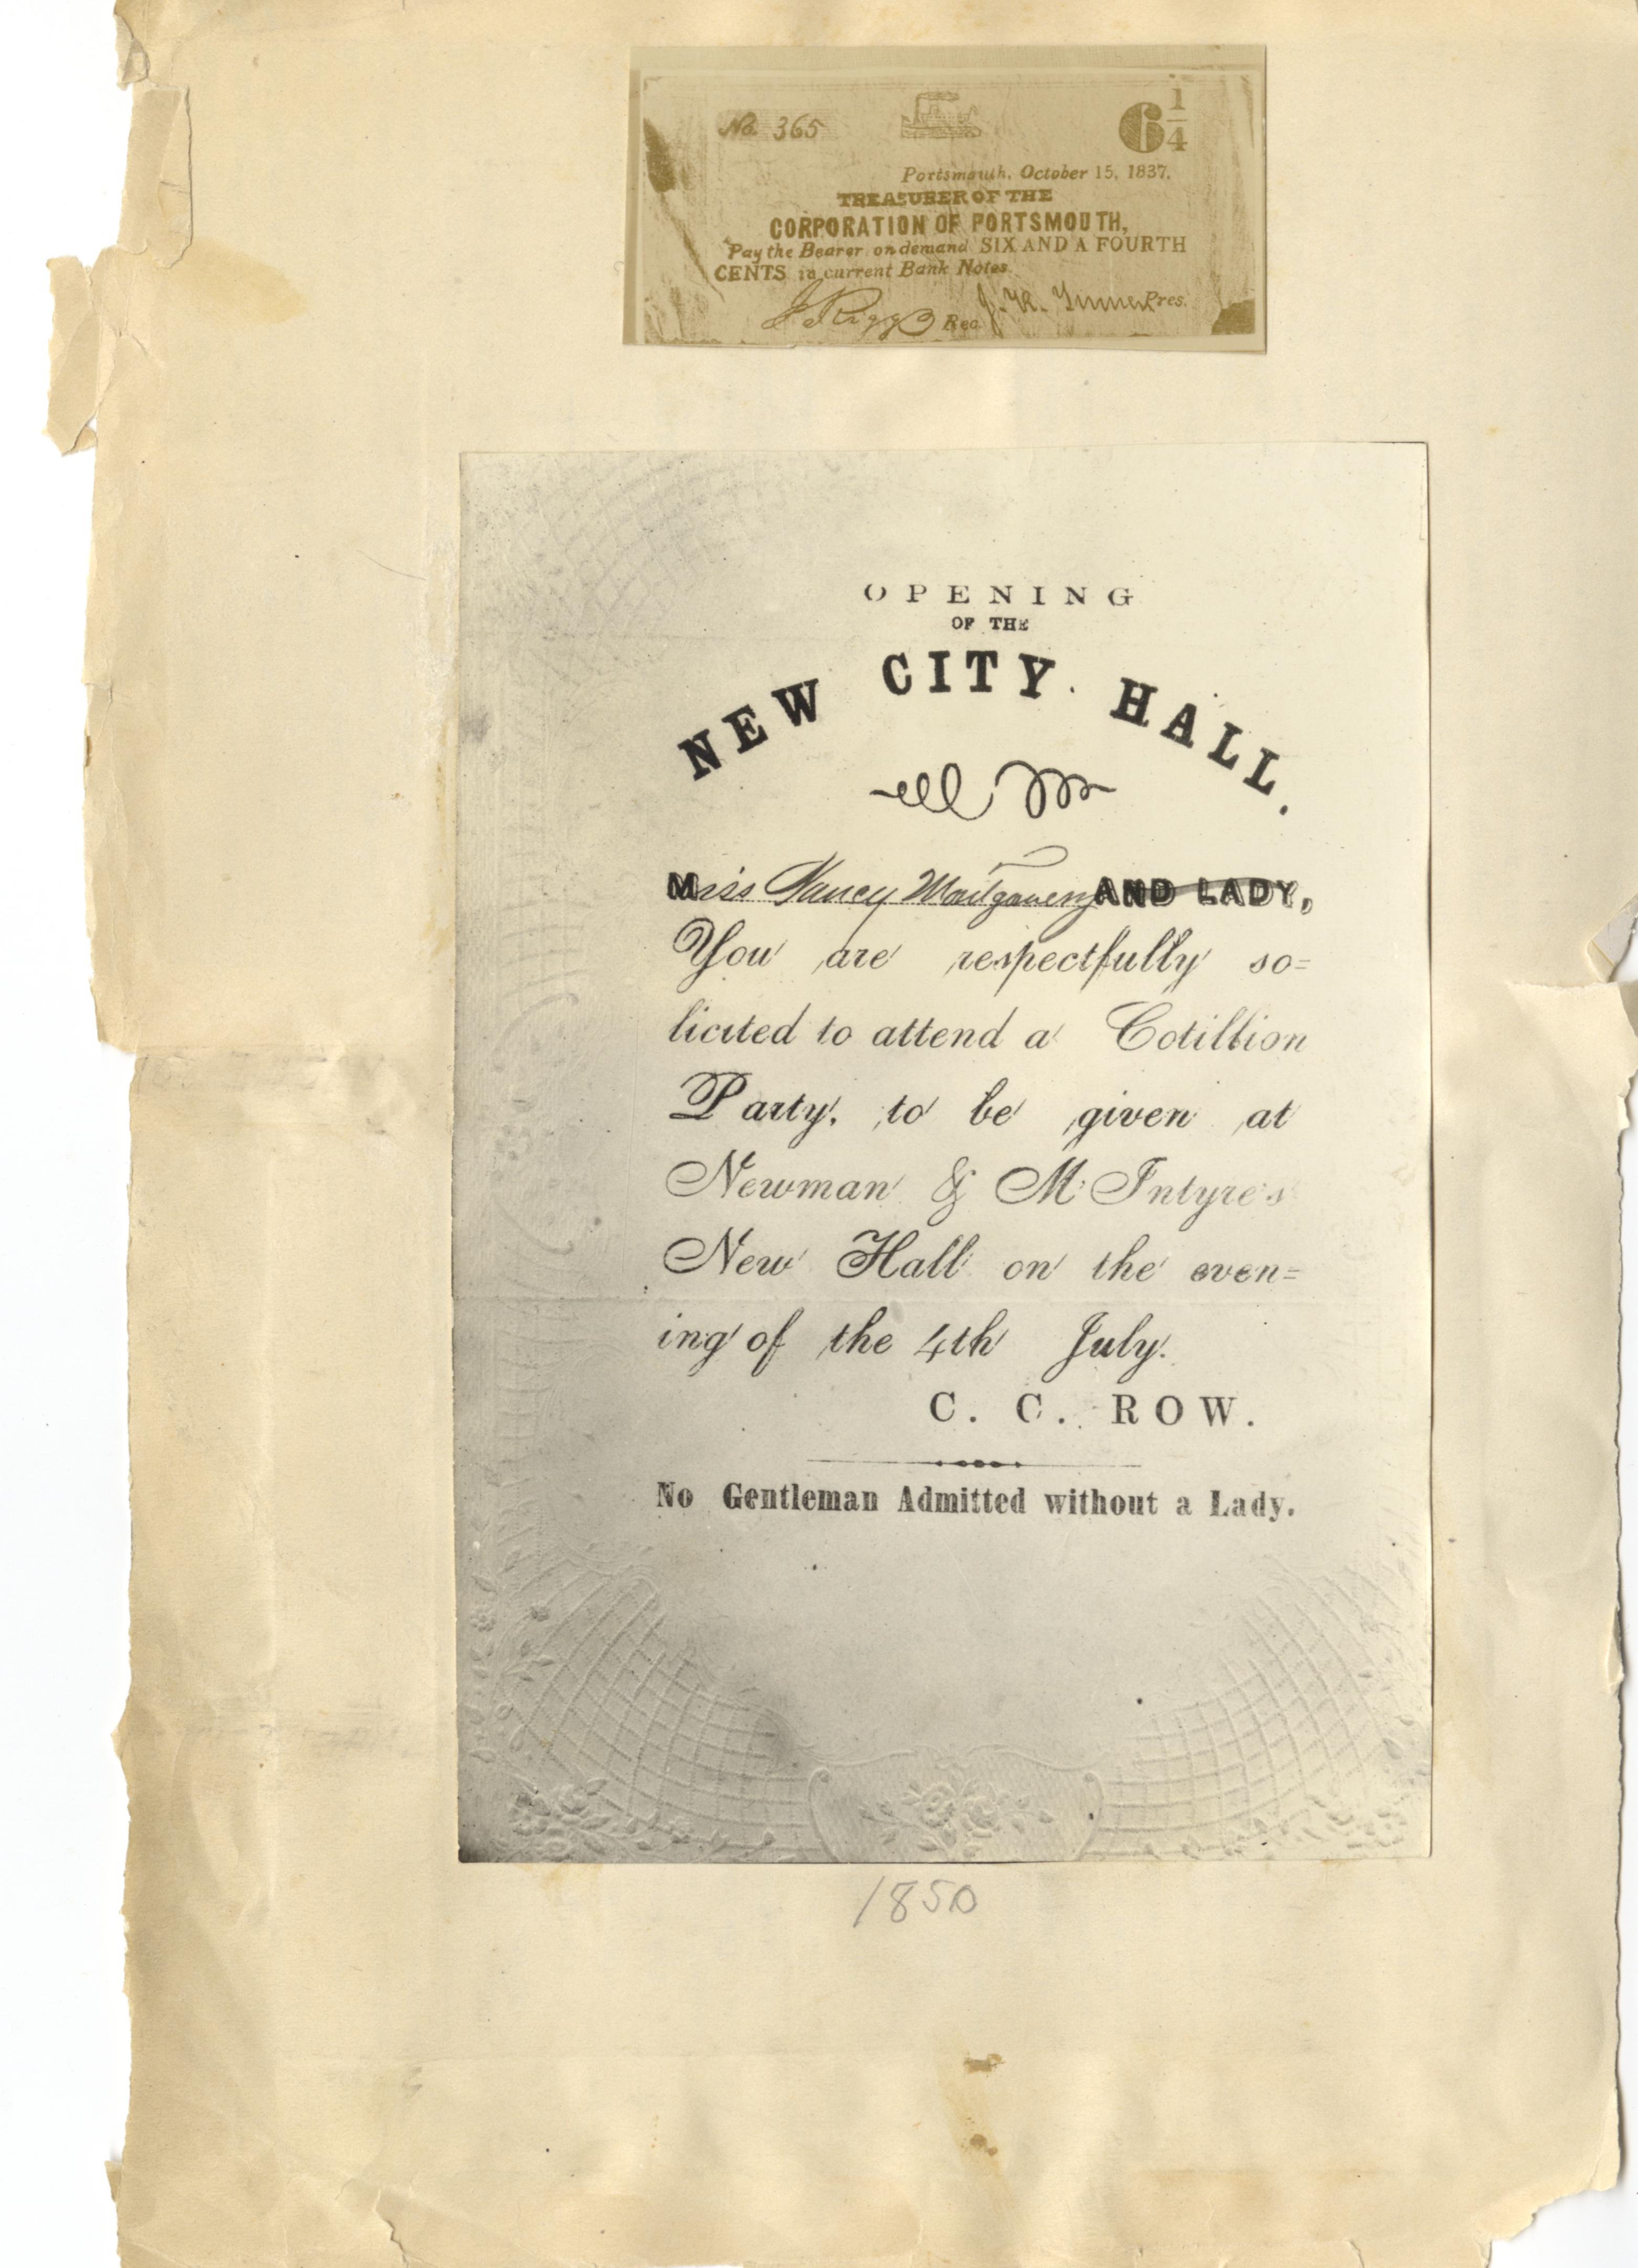 No. 365
6 1/4
Portsmouth, October 15, 1837.
TREASURER OF THE
CORPORATION OF PORTSMOUTH,
Pay the Bearer on demand SIX AND A FOURTH
CENTS in current Bank Notes.
J Riggs Rec. J. R. Pres.
OPENING
OF THE
NEW CITY HALL.
Miss Nancy AND LADY,
You are respectfully so=
licited to attend a Cotillion
Party, to be given at
Newman & McIntyre's
New Hall on the even=
ing of the 4th July.
C. C. ROW.
No Gentleman Admitted without a Lady.
1850